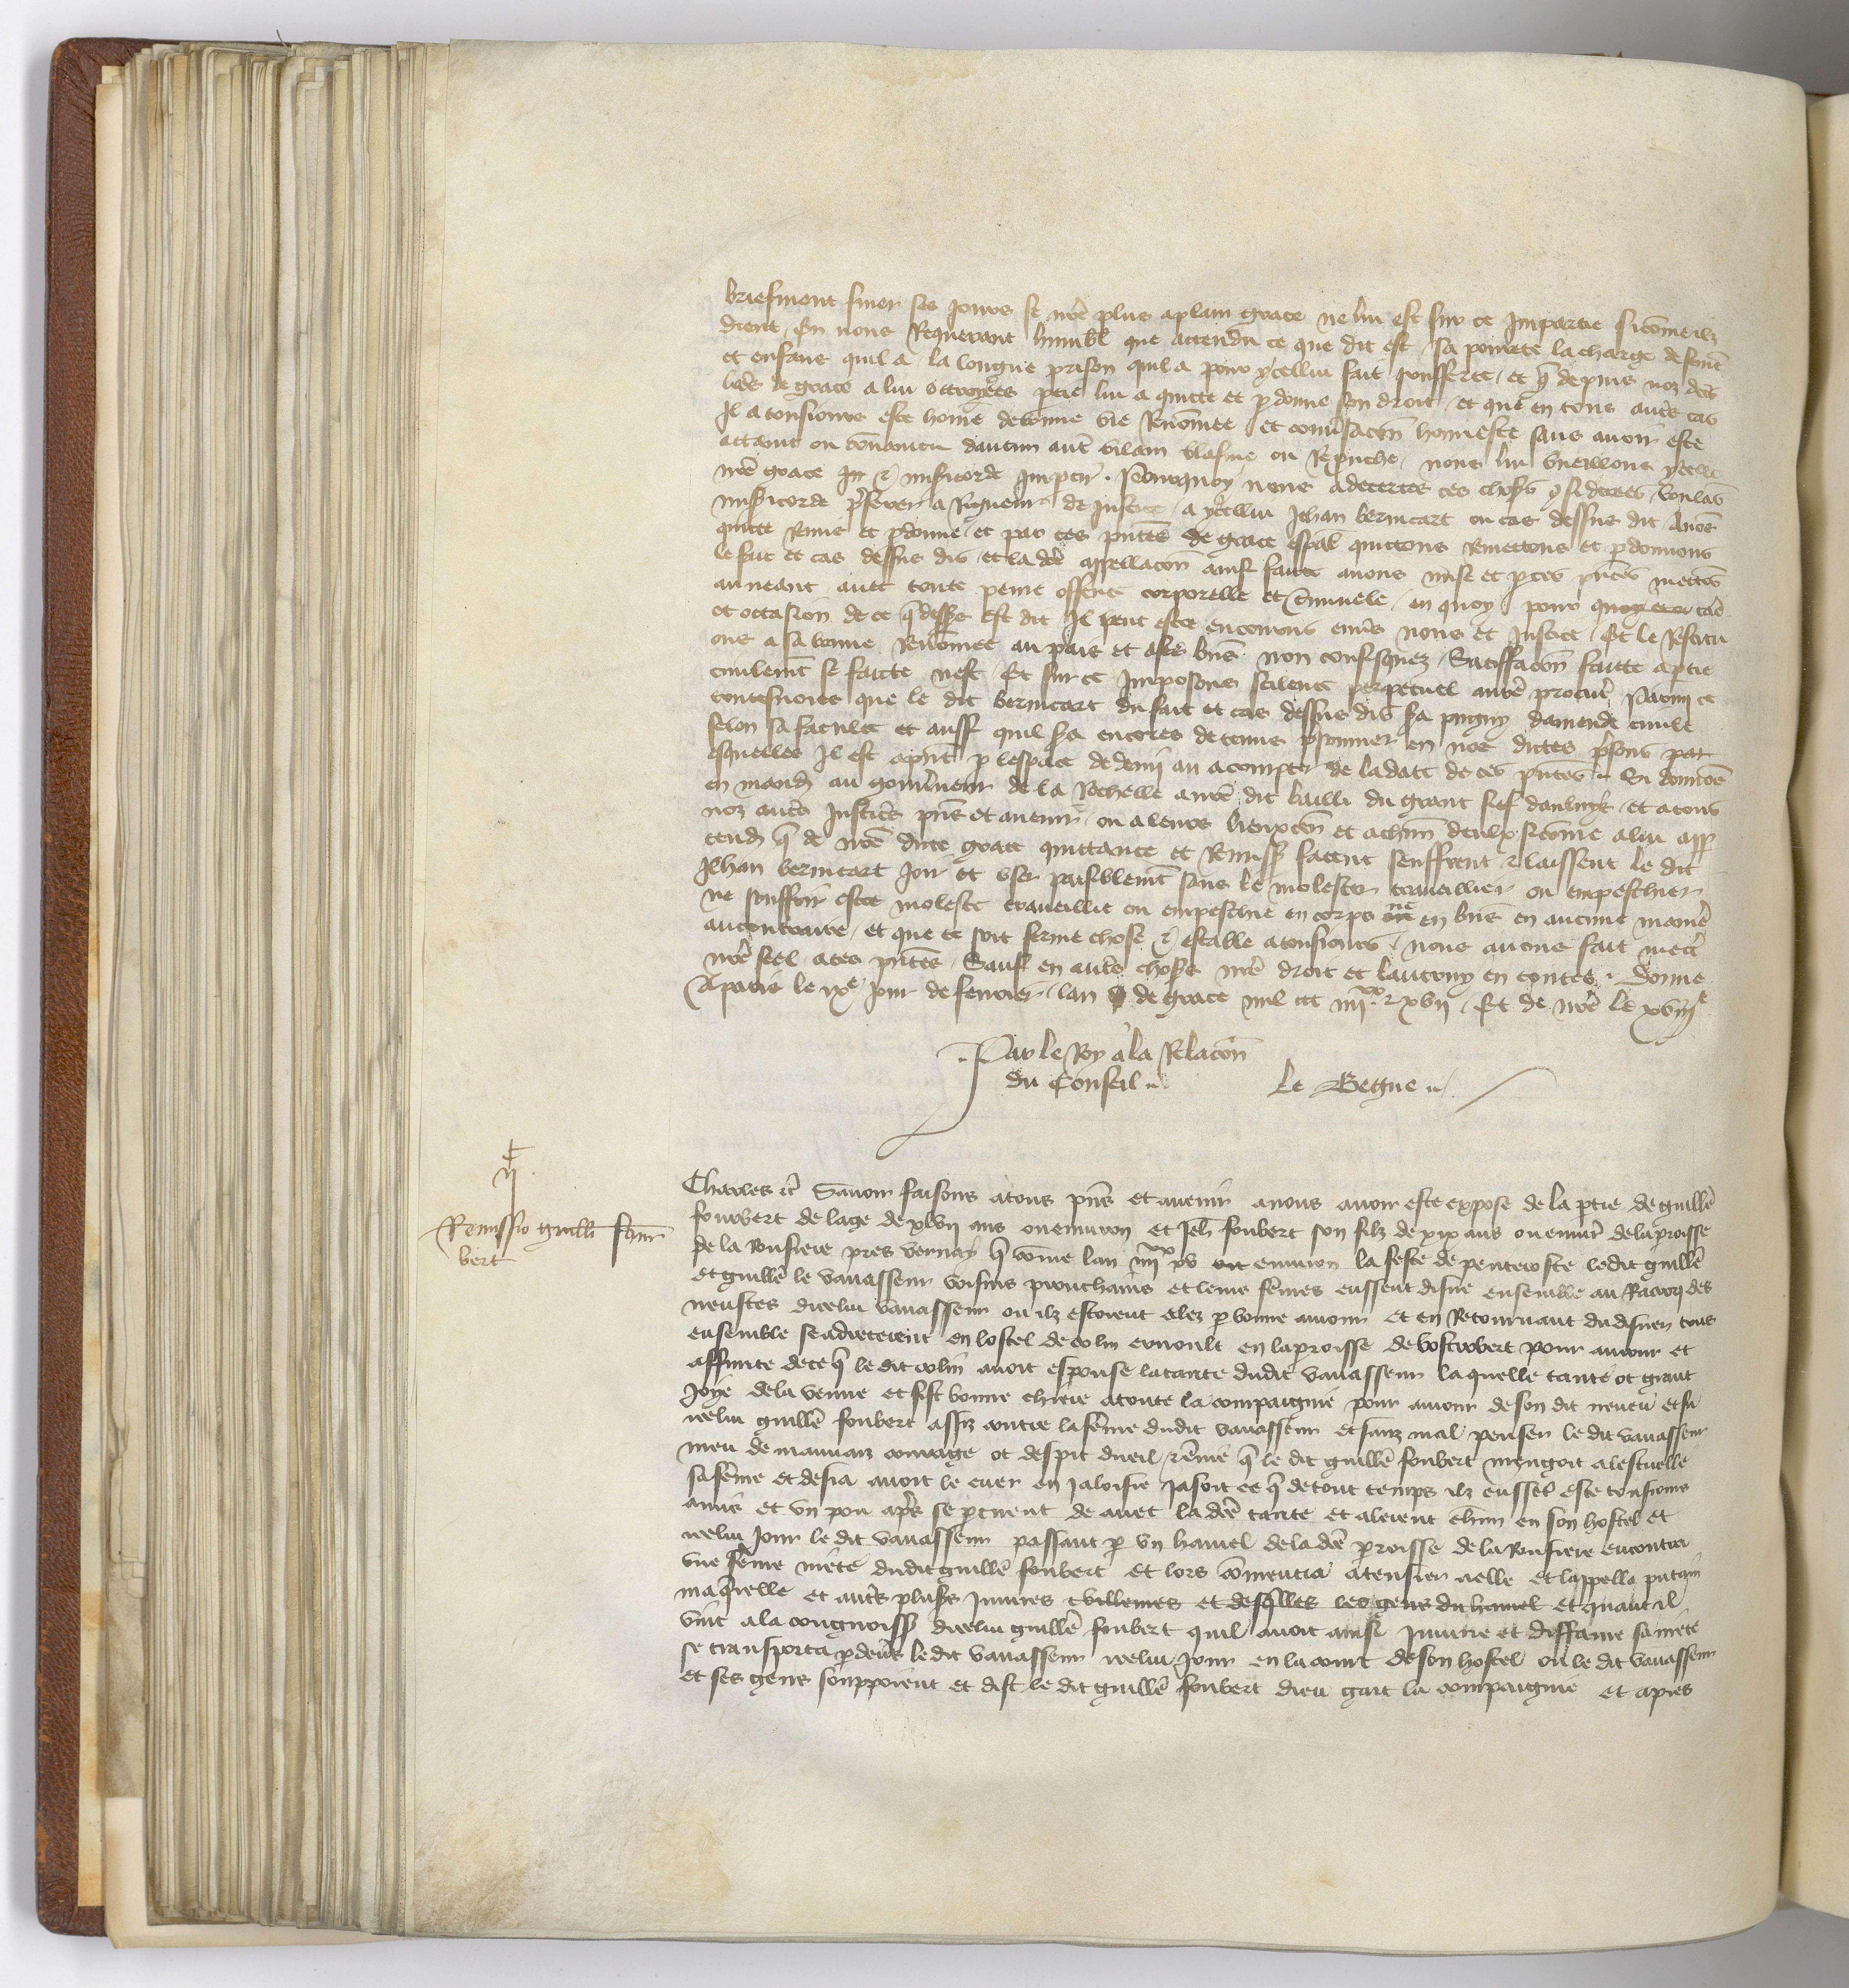 briefment finer ses jours se nre plus aplain grace ne lui est sur ce impartie si come ilz
dient, En nous Requerant humbl que attendu ce que dit est sa povrete la charge de feme
et enfans quil a la longue prison quil a pour ycellui fait soufferte, et q depuis noz dcts
lres de grace a lui ottroyees ptie lui a quitte et pdonne son droit, et que en tous autres cas
Il a tousiours este home de bonne vie Renomee et conversacon honneste sans avoir este
attaint ou convaincu daucun aut vilain blasme ou Reprouche, nous lui vueillons ycelle
nre grace et misericorde impartir. Pourquoy nous adecertes ces choses considerees, voulas
misericorde preferer a Rigueur de justice, a ycellui Jehan bernicart ou cas dessus dit Avons
quitte Remis et pdonne, et par ces pntes de grace espal quittons Remettons et pdonnons
le fait et cas dessus dis et la dce appellacon ainsi faicte avons mise et p ces pntes mettos
au neant avec toute peine offense corporelle et criminele, en quoy pour
et occasion de ce q dessus est dit Il peut estre encourus envs nous et Justice Et le Restitu
ons a sa bonne Renomee au pais et a ses biens non confisquez, Satisfacon faicte a ptie
civilemt se faicte nest, Et sur ce Imposons scilence perpetuel a nre procur, Parmi ce
toutesvoies que le dit bernicart du fait et cas dessus dis sera pugny damende civile
selon sa faculte et aussi quil sera encores detenus prisonnier en nos dictes prisons par
esquelles Il est apnt p lespace de demi an acompter de la date de ces pntes. Si donnons
en mandemt au gouverneur de la Rochelle a nre dit bailli du grant fief daulnys, et a tous
noz autres Justiciers pns et avenir, ou a leurs lieuxten et a chun deulx sicome a lui app
tendra q de nre dicte grace quittance et Remiss facent seuffrent et laissent le dit
Jehan bernicart joir et user paisiblemt sans le molester traveillier ou empeschier
ne souffrir estre moleste traveillie ou empeschie en corps ne en biens en aucune maniere
au contraire, et que ce soit ferme chose et estable a tousiours, nous avons fait mectre
nre seel a ces pntes, Sauf en autres choses nre droit et lautruy en toutes. Donne
A paris le ixe jour de fevrier, lan de grace mil ccc iiiixx et xvii, Et de nre le xviiie
Par le Roy a la Relacon
du Conseil
Le Begue
Remissio guilli four
bert
Charles etc Savoir faisons a tous pns et avenir a nous avoir este expose de la ptie de guille
fourbert de lage de xlvii ans ou environ et Jeh foubert son filz de xix ans ou envir de la proisse
de la Rousiere pres vernay q come lan iiiixx xv ou environ la feste de penteco ste ledit guille
et guille le vavasseur voisins prouchains et leurs femes eussent disne ensemble au Racroq des
neustes dicelui vavasseur ou ilz estoient alez p bonne amour et en Retournant du disner tous
ensemble se adrecerent en lostel de colin ernoult en la proisse de boscrobert pour amour et
affinite de ce q le dit colin avoit espouse la tante dudit vavasseur laquelle tante ot grant
joye de la venue et fist bonne chiere a toute la compaignie pour amour de son dit neveu et fu
icelui guille foubert assiz contre la feme dudit vavasseur et sanz mal penser le dit vavasseur
meu de mauvaiz courage ot despit dueil q le dit guille foubert mengoit a lescuelle
sa feme et desia avoit le cuer en jalousie Jasoit ce q de tout temps ilz eussent este tousiours
amis et un pou apres se ptirent de avec la dce tante et alerent chun en son hostel et
icelui jour le dit vavasseur passant p un hamel de la dce proisse de la Rousiere encontra
une feme niece dudit guille foubert et lors comenca a tensier icelle et lappella putain
maqrelle et autres pluses injures et villenies et desqlles les gens du hamel et quant il
vint a la congnoiss dicelui guille foubert quil avoit ainsi injurie et diffame sa niece
se transporta pdevs le dit vavasseur icelui jour en la court de son hostel ou le dit vavasseur
et ses gens souppoient et dist le dit guille foubert dieu gart la compaignie et apres